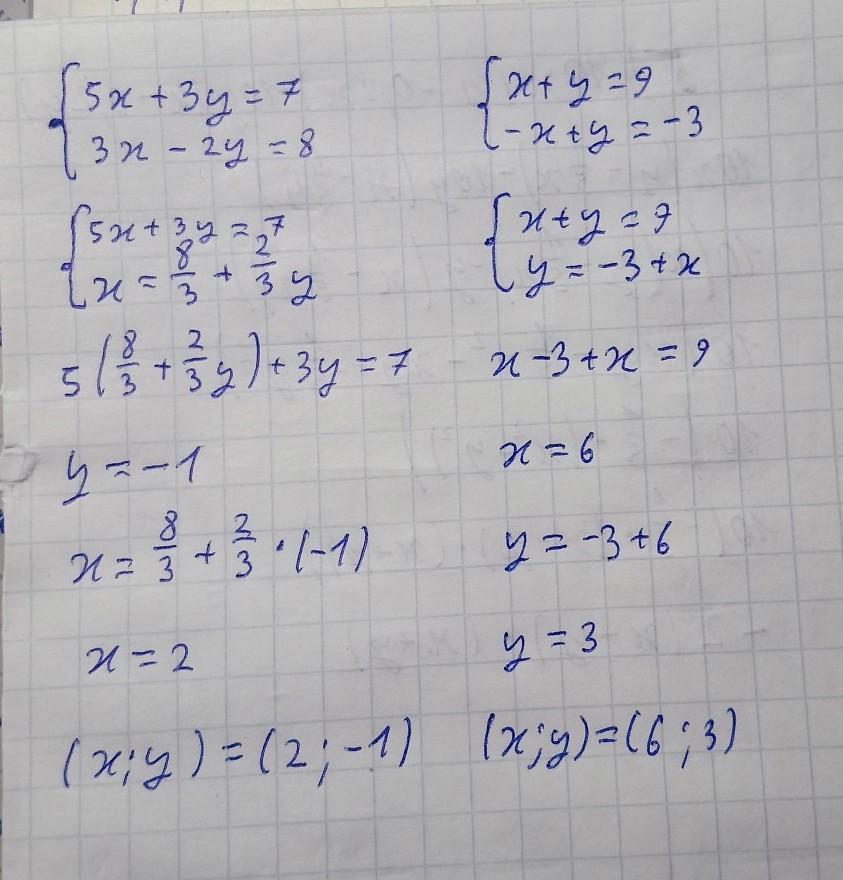 5x + 3y = 7
3x - 2y = 8
5x + 3y = 7
x = 8/3 + 2/3 y
5(8/3 + 2/3 y) + 3y = 7
y = -1
x = 8/3 + 2/3 · (-1)
x = 2
(x;y) = (2;-1)
x + y = 9
-x + y = -3
x + y = 9
y = -3 + x
x - 3 + x = 9
x = 6
y = -3 + 6
y = 3
(x;y) = (6;3)